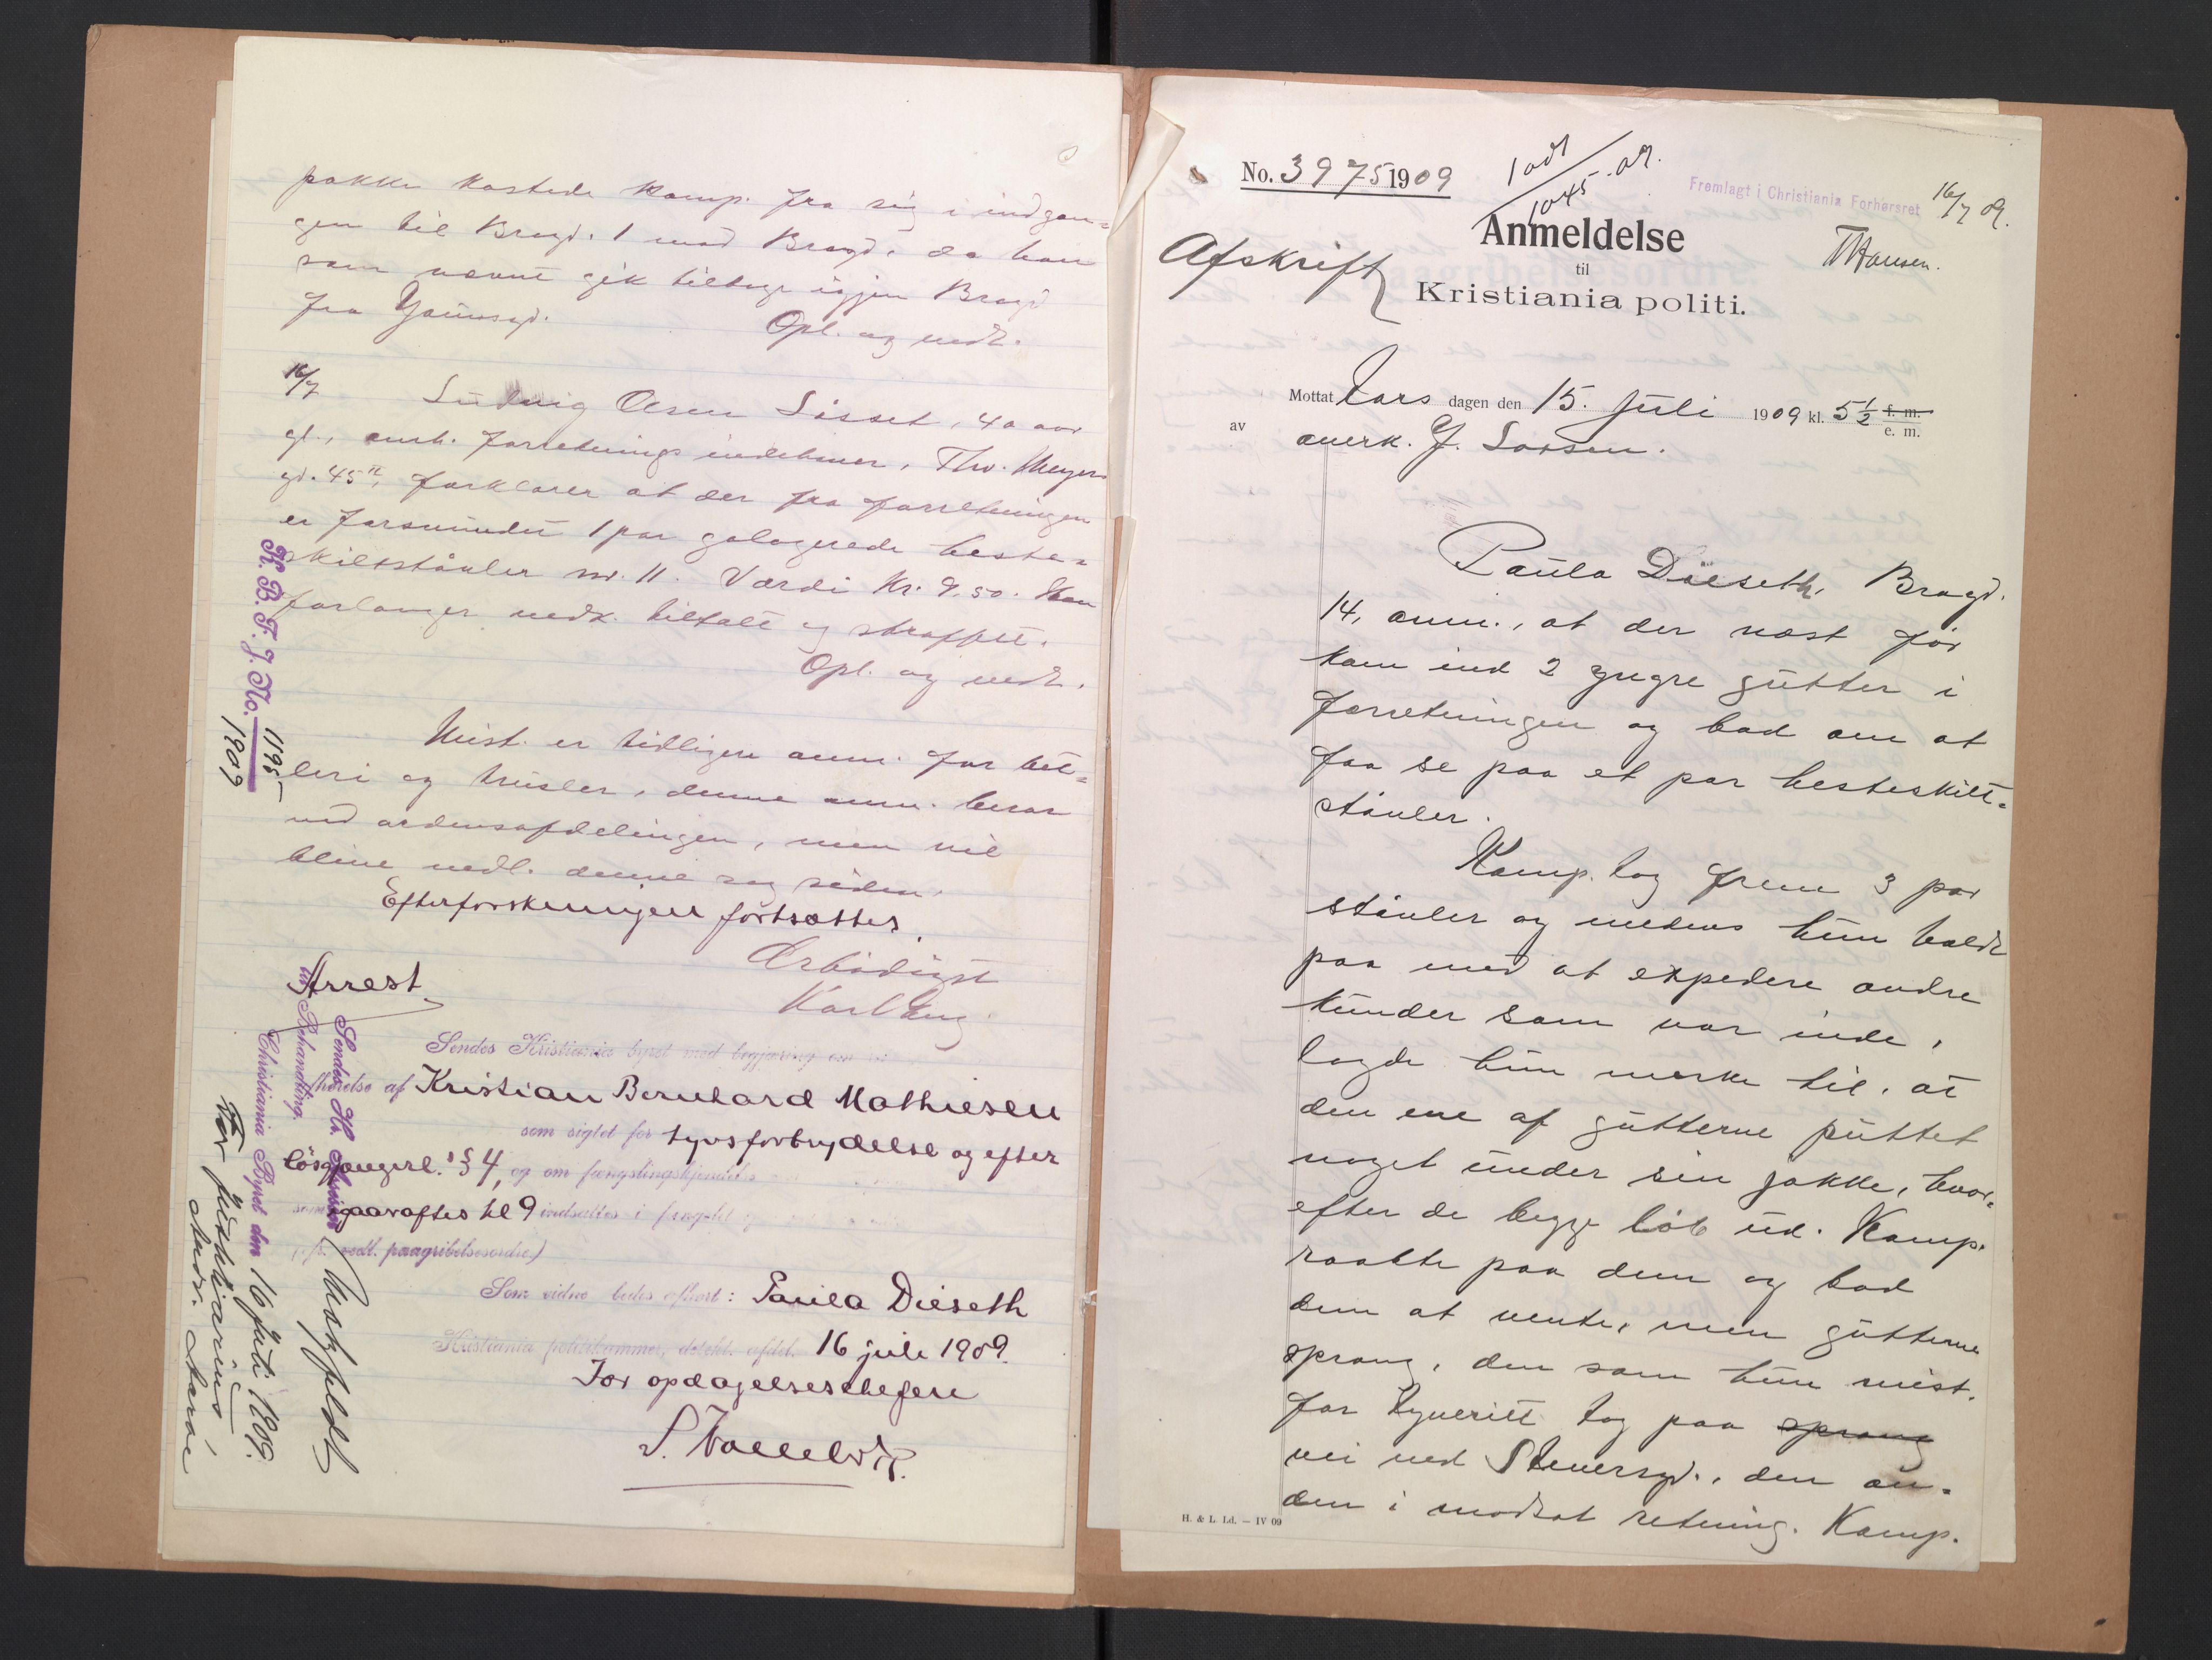 pakke kastede komp. fra sig i indgan=
gen til Bragd. 1 mod Bragd. da han
som nævnt gik tilbage igjen Bragd
fra Youngsgd.
Opl. og vedt.
16/7
Ludvig Olsen Sisset, 40 aar
gl., anm. forretnings indehaver, Thv. Meyers
gd. 45 II, forklarer at der fra forretningen
er forsvundet 1 par galogerede heste=
skilsstövler nr. 11. Værdi Kr. 9.50. Han
forlanger vedk. tiltalt og straffet.
Opl. og vedt.
Mist. er tidligere anm. for bet=
leri og trusler, denne anm. beror
ved ordensafdelingen, men vil
blive vedl. denne sag siden.
Efterforskningen fortsættes.
Ærbödigst
Karl Aug.
Arrest
Sendes Kristiania byret med begjæring om
fhørelse af Kristian Bernhard Mathiesen
som sigtet for tyvsforbrydelse og efter
lösgjængerl.s § 4, og om fængslingskjendelse
som igaaraftes kl 9 indsattes i fængslet
(jfr. vedl. paagribelsesordre)
Som vidne bedes afhørt: Paula Dieseth
Kristiania politikammer, detekt. afdel. 16 juli 1909.
For opdagelseschefen
K. B. F. J. No. 1195
1909
Sendes Hr. Assessor Motzfeldt
til Behandling.
Christiania Byret den 16 Juli 1909.
For justitiarius
No. 3975 1909
1 odl
1045.09.
Fremlagt i Christiania Forhørsret 16/7 09.
THansen.
Anmeldelse
til
Kristiania politi.
Afskrift
Mottat Tors dagen den 15. juli 1909 kl. 5½ f. m.
e. m.
av overk. J. Larsen.
Paula Dieseth, Bragd.
14, anm., at der næst før
kom ind 2 yngre gutter i
forretningen og bad om at
faa se paa et par hesteskilt=
stövler.
Komp. tog frem 3 par
stövler og medens hun holdt
paa med at expedere andre
kunder som var inde,
lagde hun mærke til, at
den ene af gutterne puttet
noget under sin jakke, hvor=
efter de begge löb ud. Komp.
raabte paa dem og bad
dem at vente, men gutterne
sprang, den som hun mist.
for tyveriet tog paa sprang
vei ned Skuersgd., den an=
den i modsat retning. Komp.
H. & L. Ld. — IV 09